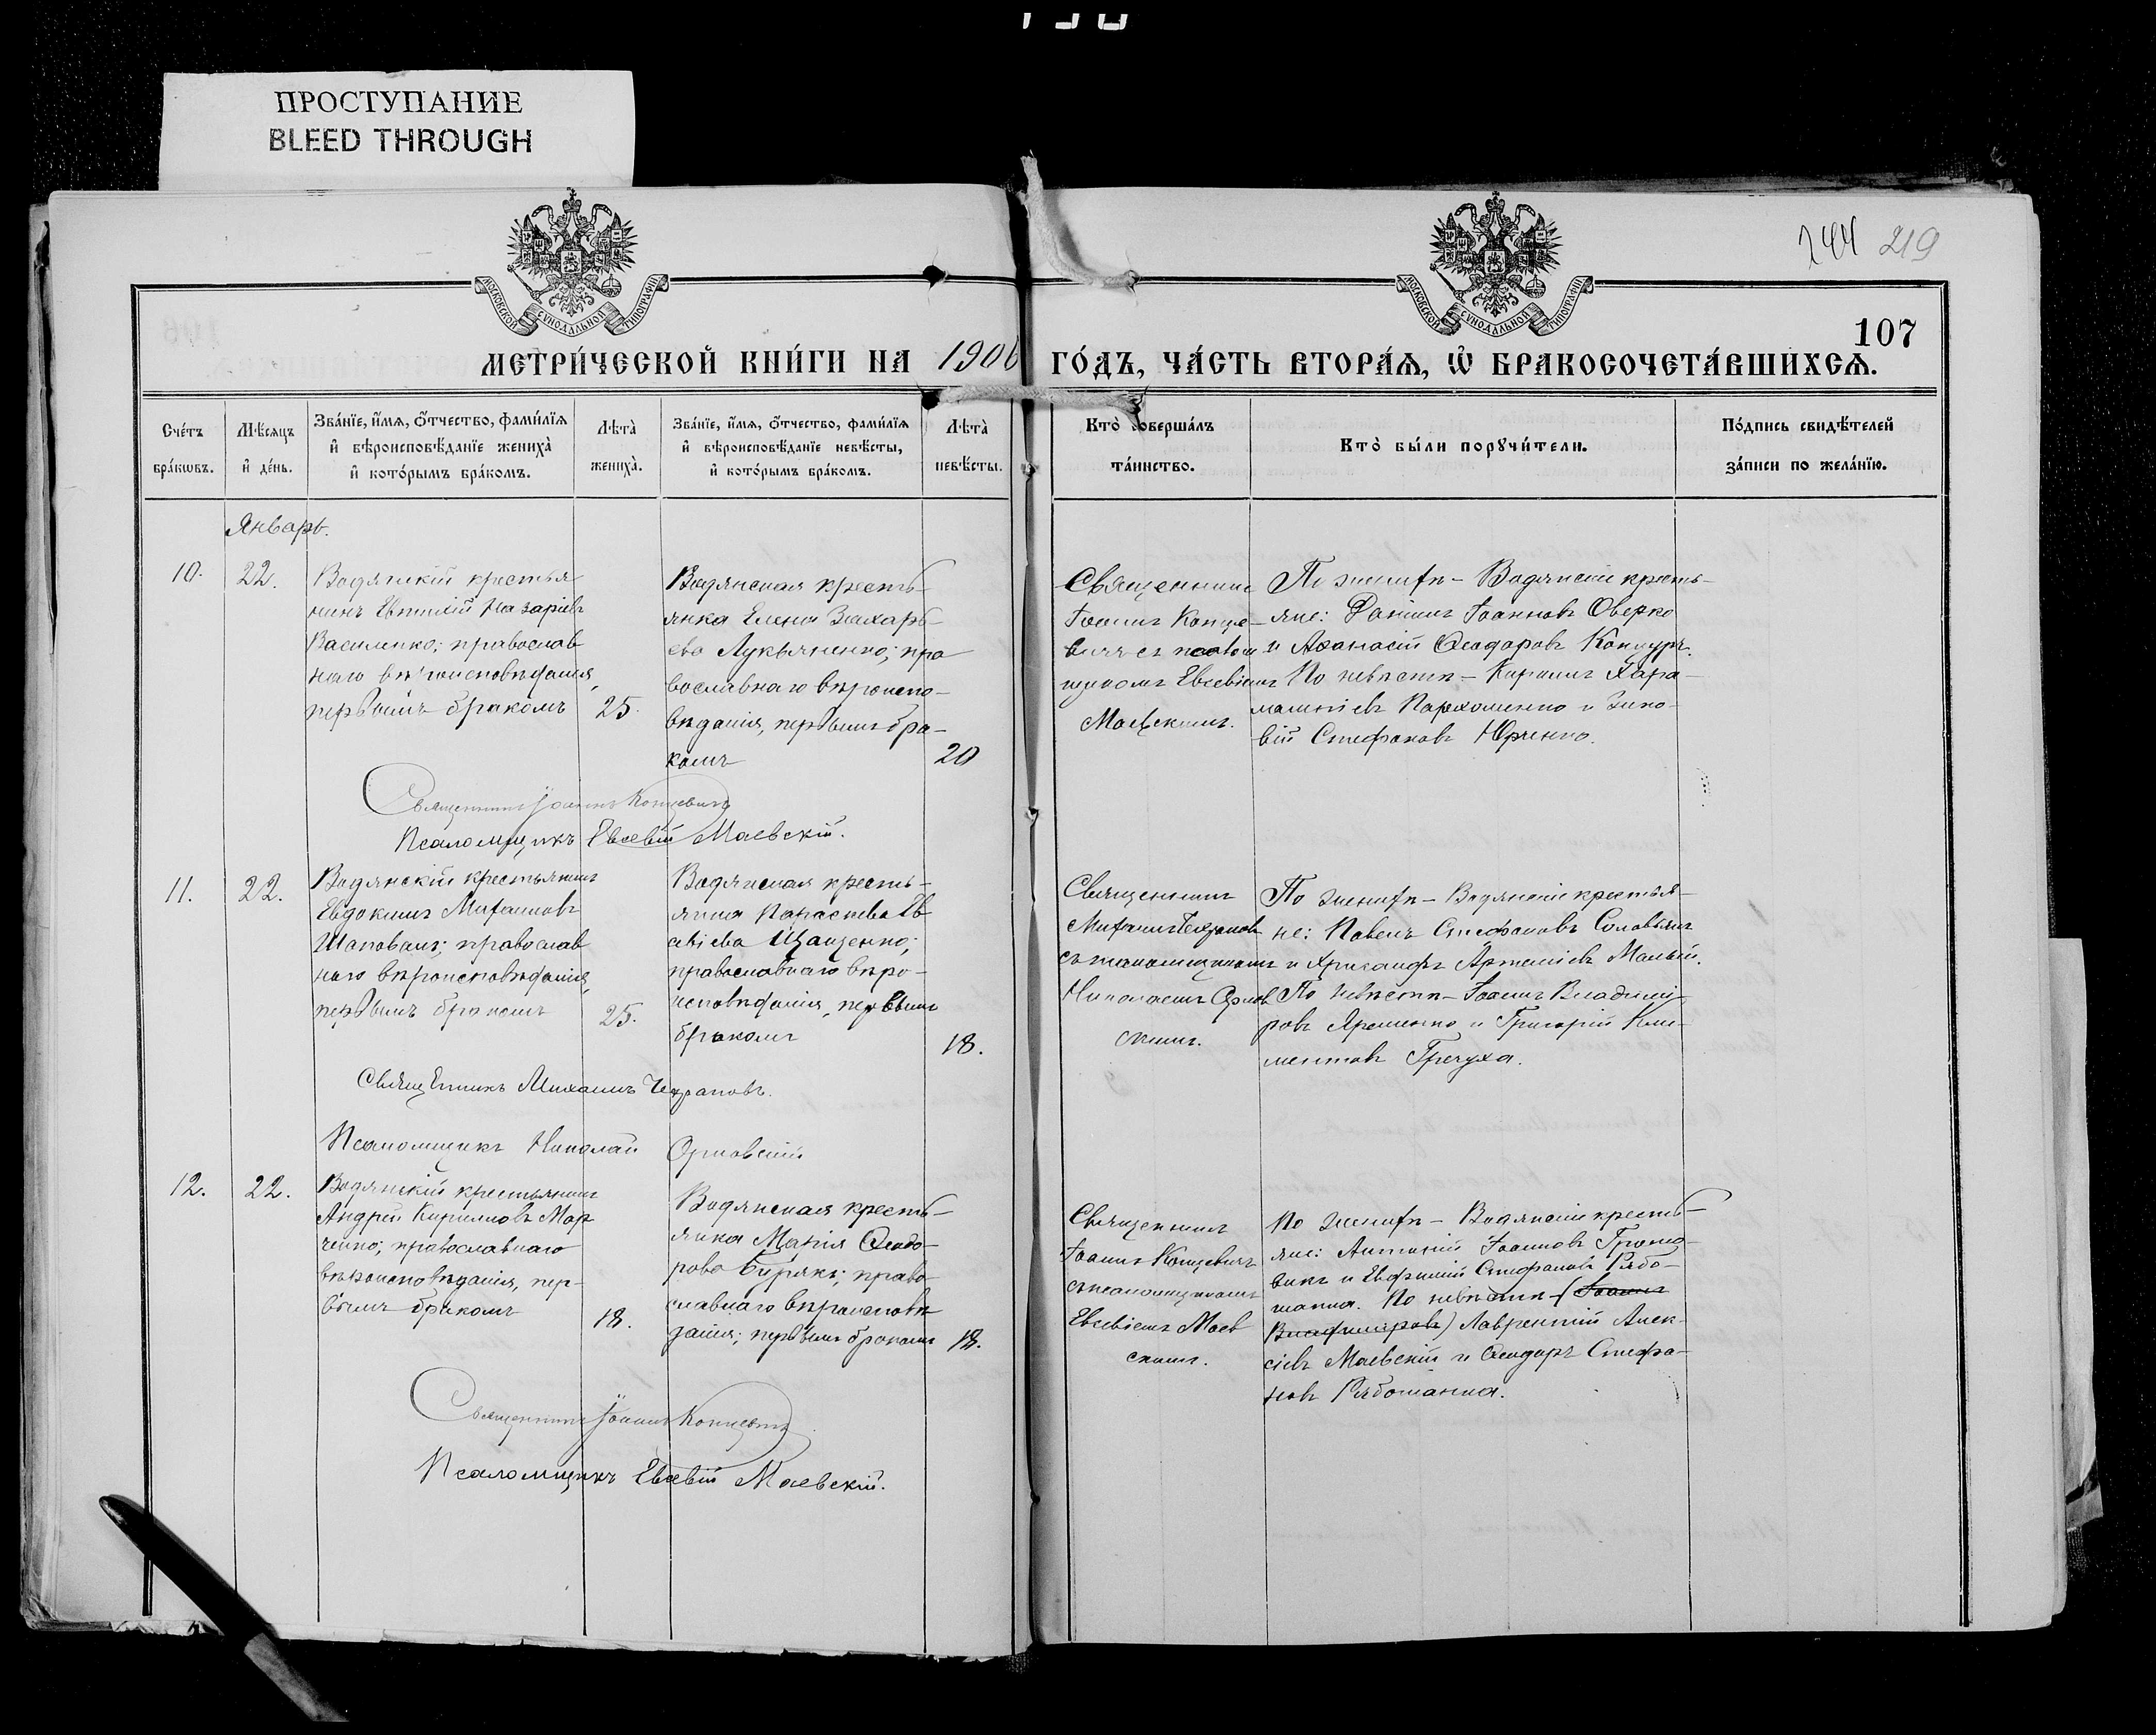 ПРОСТУПАНИЕ
BLEED THROUGH
244 219
107
МОСКОВСКОЙ СУНОДАЛЬНОЙ ТИПОГРАФІИ
МОСКОВСКОЙ СУНОДАЛЬНОЙ ТИПОГРАФІИ
МЕТРИ́ЧЕСКОЙ КНИ́ГИ НА 1906 ГО́ДЪ, ЧА́СТЬ ВТОРА́Ѧ, Ѽ БРАКОСОЧЕТА́ВШИХСѦ.
Сче́тъ бра́кѡвъ.
Мѣ́сяцъ и҆ де́нь.
Зва́нїе, и҆́мѧ, ѻ҆́тчество, фами́лїѧ
и҆ вѣроисповѣ́данїе жениха̀
и҆ кото́рымъ бра́комъ.
Лѣ́та̀ жениха̀.
Зва́нїе, и҆́мѧ, ѻ҆́тчество, фами́лїѧ
и҆ вѣроисповѣ́данїе невѣ́сты,
и҆ кото́рымъ бра́комъ.
Лѣ́та̀ невѣ́сты.
Кто̀ соверша́лъ та́инство.
Кто̀ бы́ли порꙋчи́тели.
По́дпись свидѣ́телей за́писи по жела́нїю.
Январь.
10.
22.
Водянскій крестья
нинъ Евтихій Назаріевъ
Василенко; православ
наго вѣроисповѣданія,
первымъ бракомъ
25.
Водянская кресть-
янка Елена Захарь-
ева Лукьяненко; пра
вославнаго вѣроиспо-
вѣданія, первымъ бра-
комъ
20
Священникъ
Іоаннъ Конце-
вичъ съ псалом
щикомъ Евсевіемъ
Маевскимъ.
По женихѣ - Водянскіе кресть-
яне: Даніилъ Іоанновъ Оверко
и Аѳанасій Ѳеодоровъ Кокодуръ.
По невѣстѣ - Кириллъ Хара-
лампіевъ Пархоменко и Зино-
вій Стефановъ Юрченко.
Священникъ Іоаннъ Концевичъ
Псаломщикъ Евсевій Маевскій.
11.
22.
Водянскій крестьянинъ
Евдокимъ Михаиловъ
Шаповалъ; православ
наго вѣроисповѣданія,
первымъ бракомъ
25.
Водянская кресть-
янка Параскева Ев
севіева Щащенко;
православнаго вѣро-
исповѣданія, первымъ
бракомъ
18.
Священникъ
Михаилъ
съ псаломщикомъ
Николаемъ Орлов
скимъ.
По женихѣ - Водянскіе крестья-
не: Павелъ Стефановъ Соловьянъ
и Хрисанфъ Артеміевъ Малый.
По невѣстѣ - Іоаннъ Владимі-
ровъ Яременко и Григорій Кли-
ментовъ Гречуха.
Священникъ Михаилъ
Псаломщикъ Николай Орловскій
12.
22.
Водянскій крестьянинъ
Андрей Кирилловъ Мар
ченко; православнаго
вѣроисповѣданія, пер-
вымъ бракомъ
18.
Водянская кресть-
янка Марія Ѳеодо-
рова Бирякъ; право
славнаго вѣроисповѣ
данія; первымъ бракомъ
18.
Священникъ
Іоаннъ Концевичъ
съ псаломщикомъ
Евсевіемъ Маев
скимъ.
По женихѣ - Водянскіе кресть-
яне: Антоній Іоанновъ Громо-
викъ и Евфимій Стефановъ Рябо-
шапка. По невѣстѣ - (Іоаннъ
Владиміровъ) Лаврентій Алек-
сіевъ Маевскій и Ѳеодоръ Стефа-
новъ Рябошапка.
Священникъ Іоаннъ Концевичъ
Псаломщикъ Евсевій Маевскій.